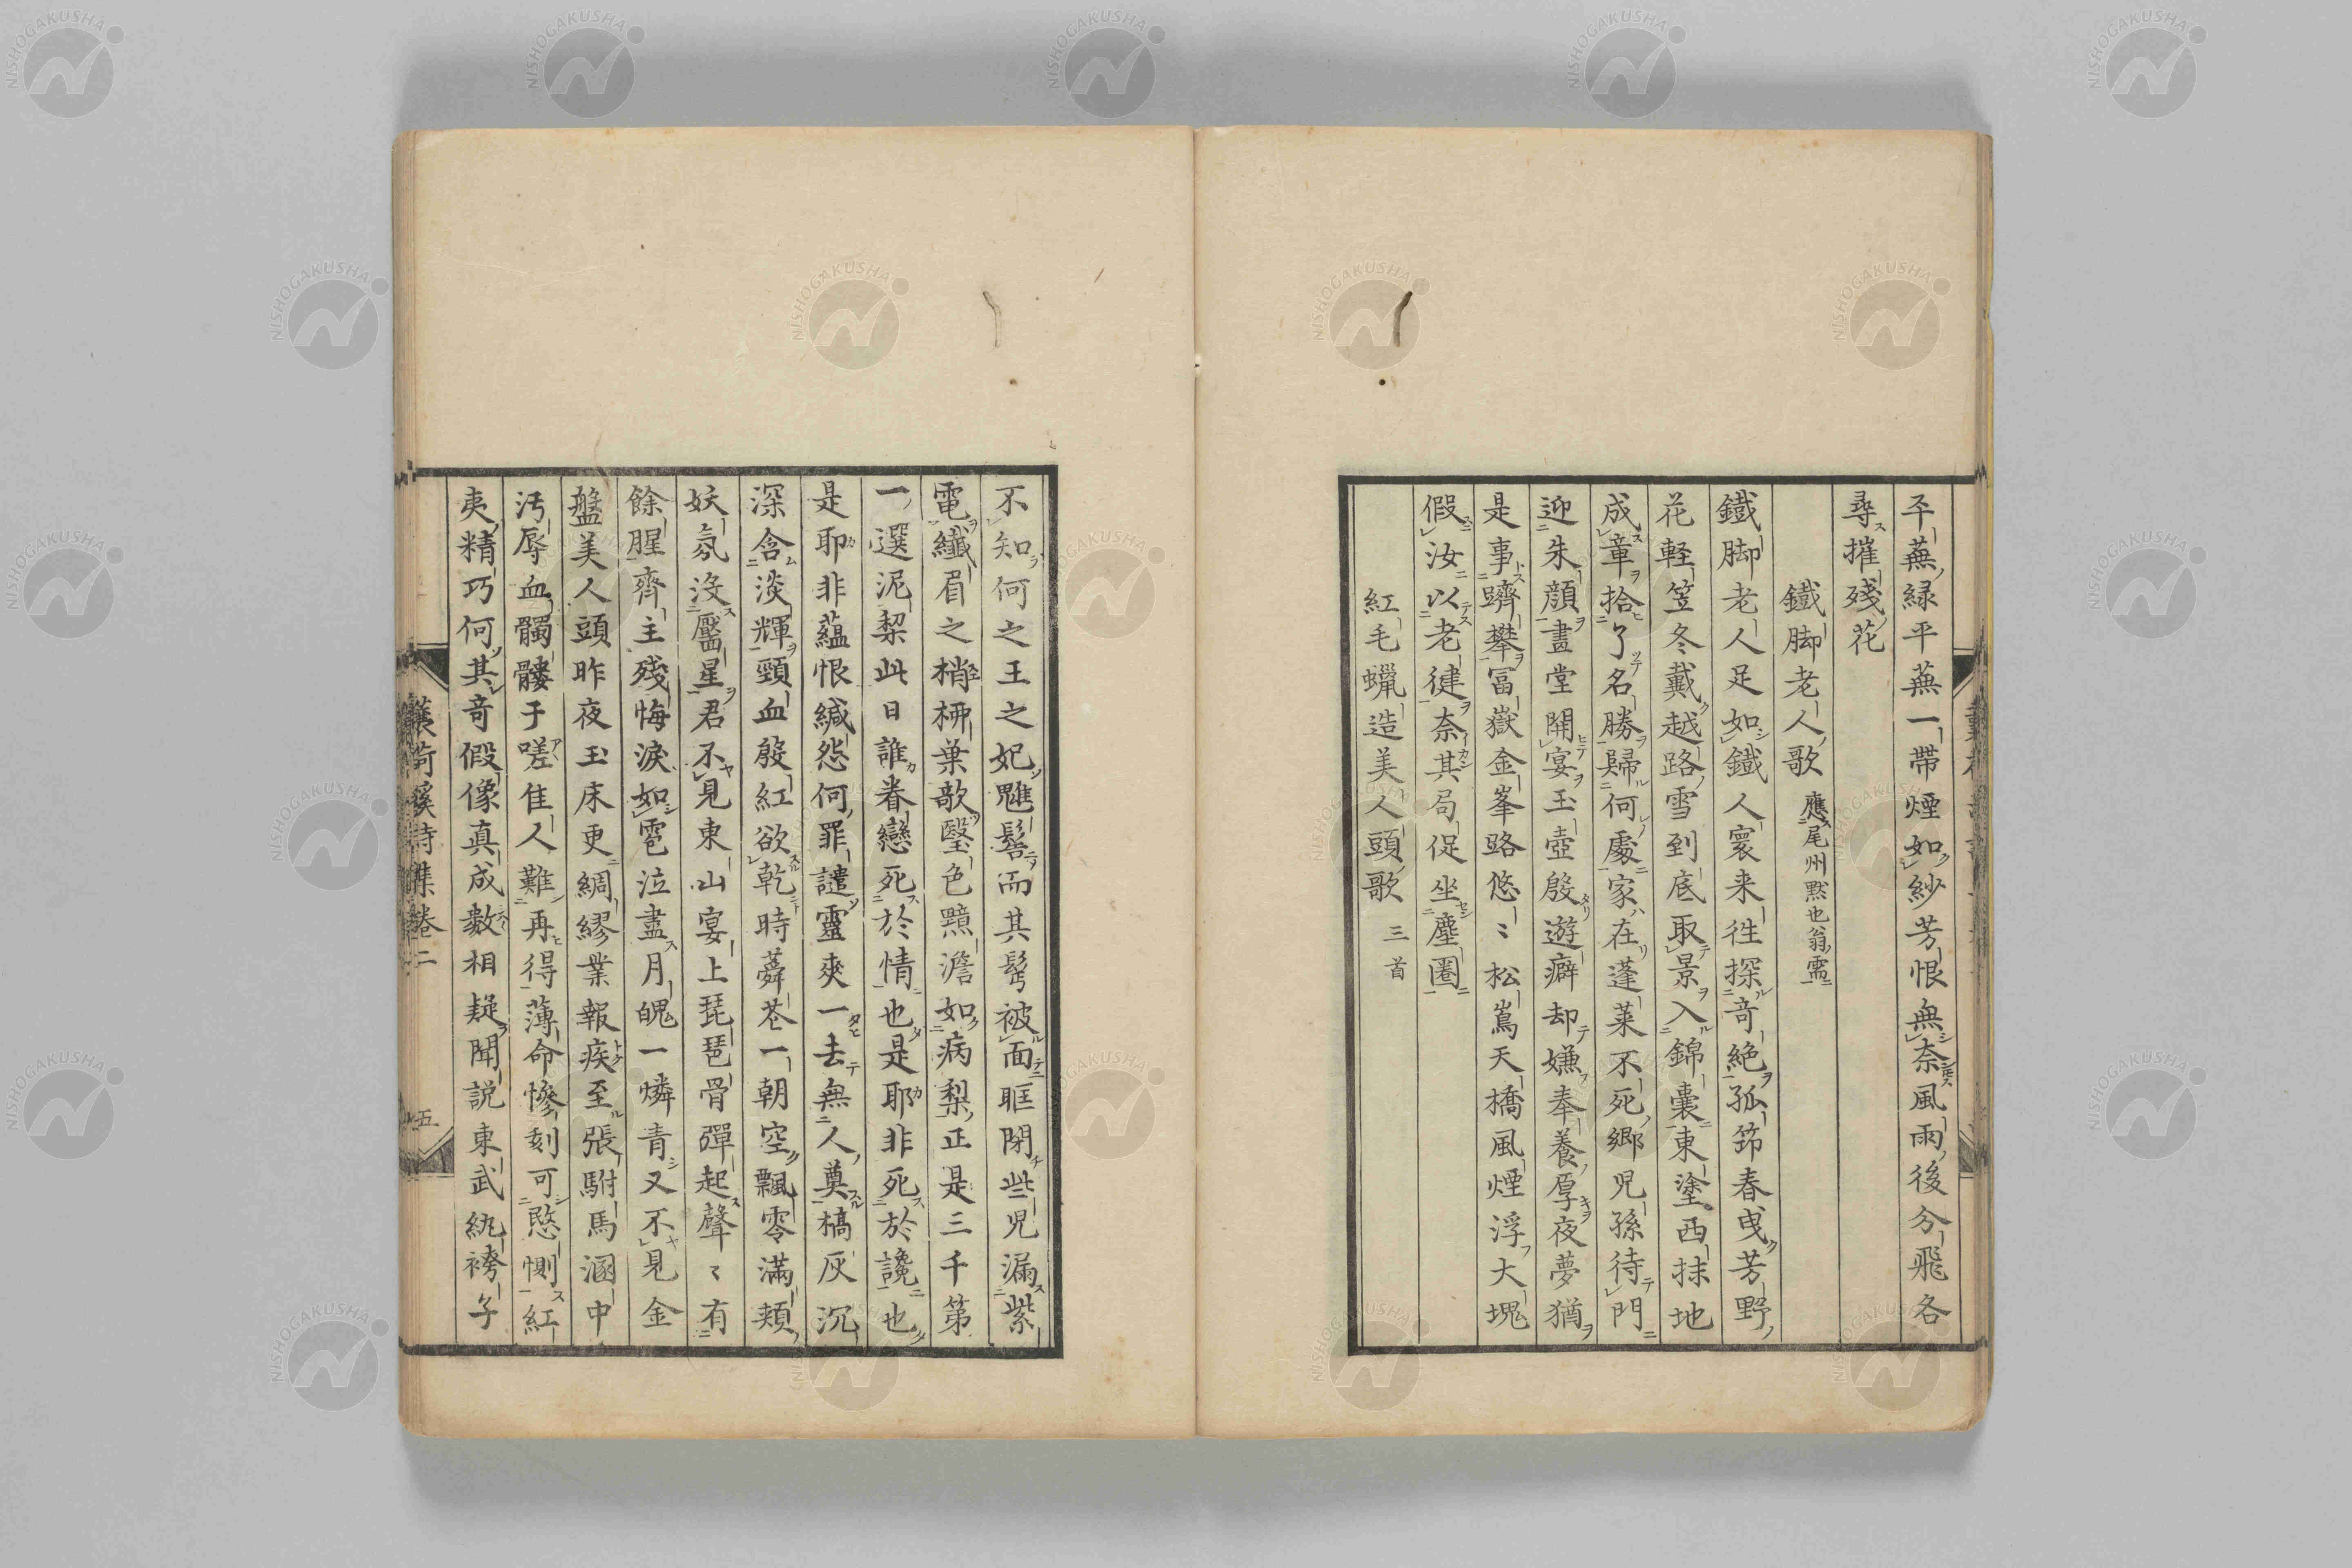 平蕪緑平蕪一帶煙如紗芳恨無奈風雨後分飛各
尋摧殘花
鐵脚老人歌 應尾州黙也翁需
鐵脚老人足如鐵人寰来徃探竒絶孤筇春曵芳野
花軽笠冬戴越路雪到底取景入錦囊東塗西抹地
成章拾了名勝歸何處家在蓬莱不死郷児孫待門
迎朱顔畫堂開宴玉壺殷遊癖却嫌奉養厚夜夢猶
是事躋攀冨嶽金峯路悠〻松嶌天橋風煙浮大塊
假汝以老健奈其局促坐塵圏
紅毛蠟造美人頭歌 三首
不知何之王之妃魋髻而其髩被面眶閉些児漏紫
電纎眉之梢栁葉歌翳色黯澹如病梨正是三千第
一選泥犁此日誰眷戀死於情也是耶非死於讒也
是耶非藴恨緘怨何罪譴靈爽一去無人奠槁灰沉
深含淡輝頸血殷紅欲乾時蕣苍一朝空飄零滿頬
妖氛没靨星君不見東山宴上琵琶骨彈起聲〻有
餘腥齊主殘悔淚如雹泣盡月魄一燐青又不見金
盤美人頭昨夜玉床更綢繆業報疾至張駙馬溷中
汚辱血髑髏于嗟佳人難再得薄命慘刻可愍惻紅
夷精巧何其竒假像真成數相疑聞説東武紈袴子
詩集卷二
五
NISHOGAKUSHA